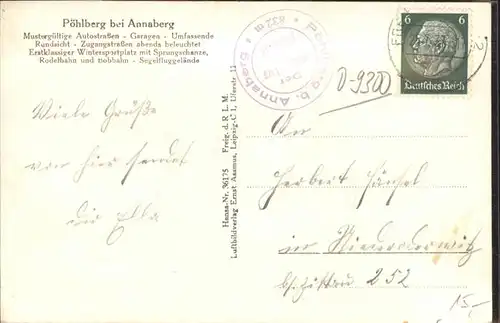 Pöhlberg bei Annaberg
Mustergültige Autostraßen - Garagen - Umfassende
Rundsicht - Zugangstraßen abends beleuchtet
Erstklassiger Wintersportplatz mit Sprungschanze,
Rodelbahn und Bobbahn - Segelfluggelände
Viele Grüße
von hier sendet
die Ella
Hansa-Nr. 36175 Freig. d. R L M.
Luftbildverlag Ernst Assmus, Leipzig-C 1, Uferstr. 11
Pöhlberg b. Annaberg
832 m
6
6
Deutsches Reich
D-9300
An
Herbert
in Niederoderwitz
bei Zittau 252
15,-